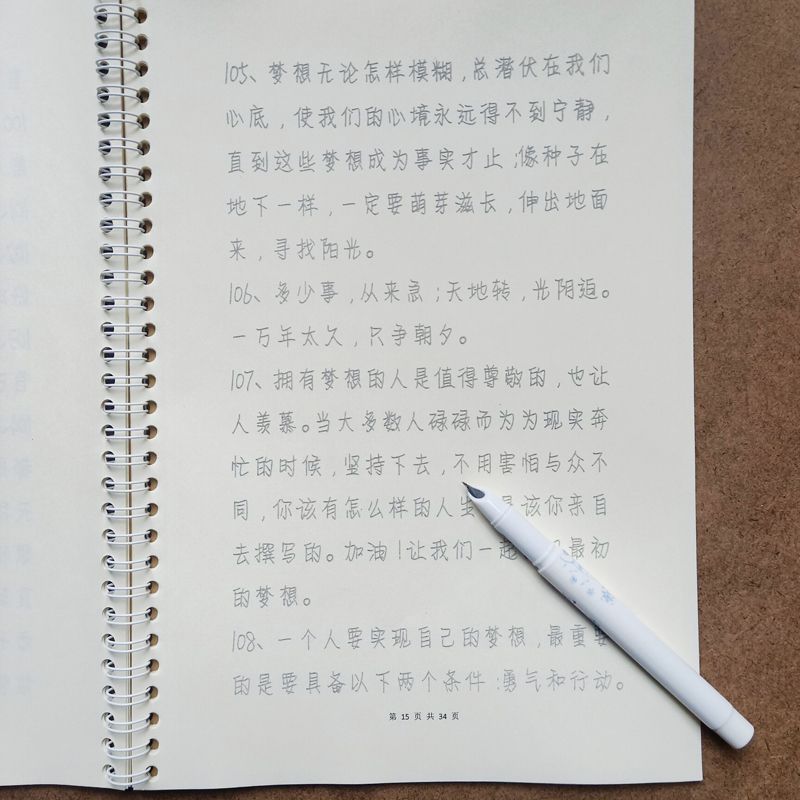 105、梦想无论怎样模糊，总潜伏在我们
心底，使我们的心境永远得不到宁静，
直到这些梦想成为事实才止；像种子在
地下一样，一定要萌芽滋长，伸出地面
来，寻找阳光。
106、多少事，从来急；天地转，光阴迫。
一万年太久，只争朝夕。
107、拥有梦想的人是值得尊敬的，也让
人羡慕。当大多数人碌碌而为为现实奔
忙的时候，坚持下去，不用害怕与众不
同，你该有怎么样的人生 是该你亲自
去撰写的。加油！让我们一起 最初
的梦想。
108、一个人要实现自己的梦想，最重要
的是要具备以下两个条件：勇气和行动。
第 15 页 共 34 页